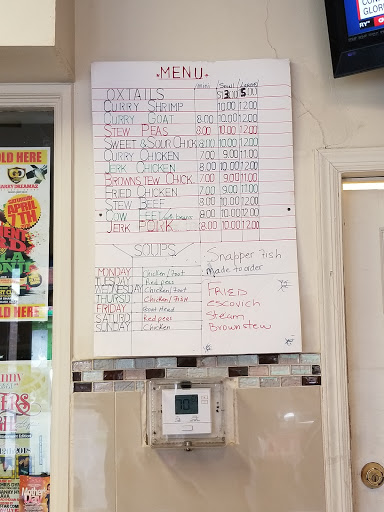 MENU
mini (Small) (Large)
OXTAILS $13.00 15.00
CURRY SHRIMP 10.00 12.00
CURRY GOAT 8.00 10.00 12.00
STEW PEAS 8.00 10.00 12.00
SWEET & SOUR CHICK 8.00 10.00 12.00
CURRY CHICKEN 7.00 9.00 11.00
JERK CHICKEN 8.00 10.00 12.00
BROWNSTEW CHICK. 7.00 9.00 11.00
FRIED CHICKEN 7.00 9.00 11.00
STEW BEEF 8.00 10.00 12.00
COW FEET & beans 8.00 10.00 12.00
JERK PORK 8.00 10.00 12.00
SOUPS
MONDAY Chicken/Foot
TUESDAY Red peas
WEDNESDAY Chicken/Foot
THURSD Chicken/Fish
FRIDAY Goat Head
SATURD Red peas
SUNDAY Chicken
Snapper Fish
Made to order
FRIED
escovich
Steam
Brownstew
OLD HERE
SATURDAY
APRIL
7TH
OLD HERE
GLOR